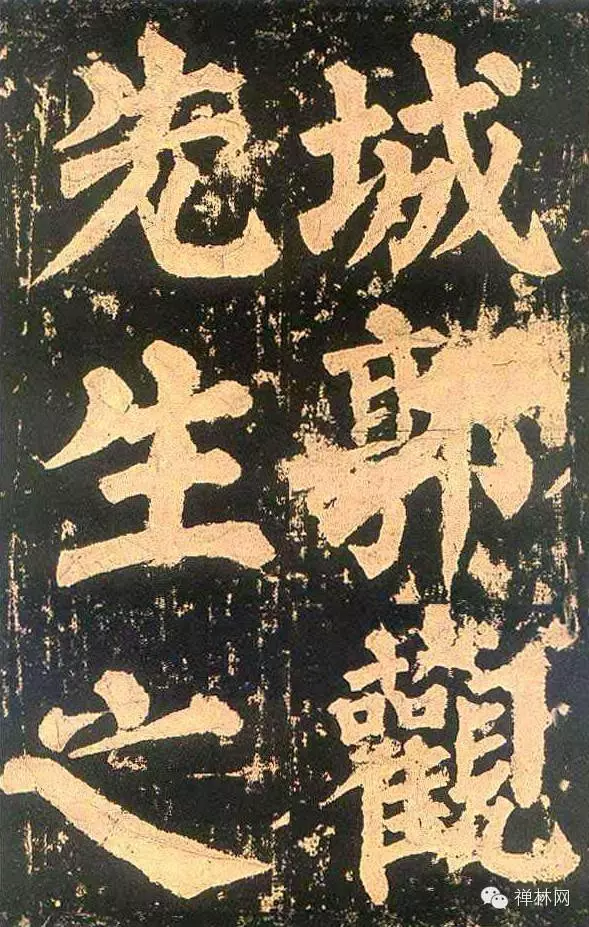 城郭觀
先生之
禅林网